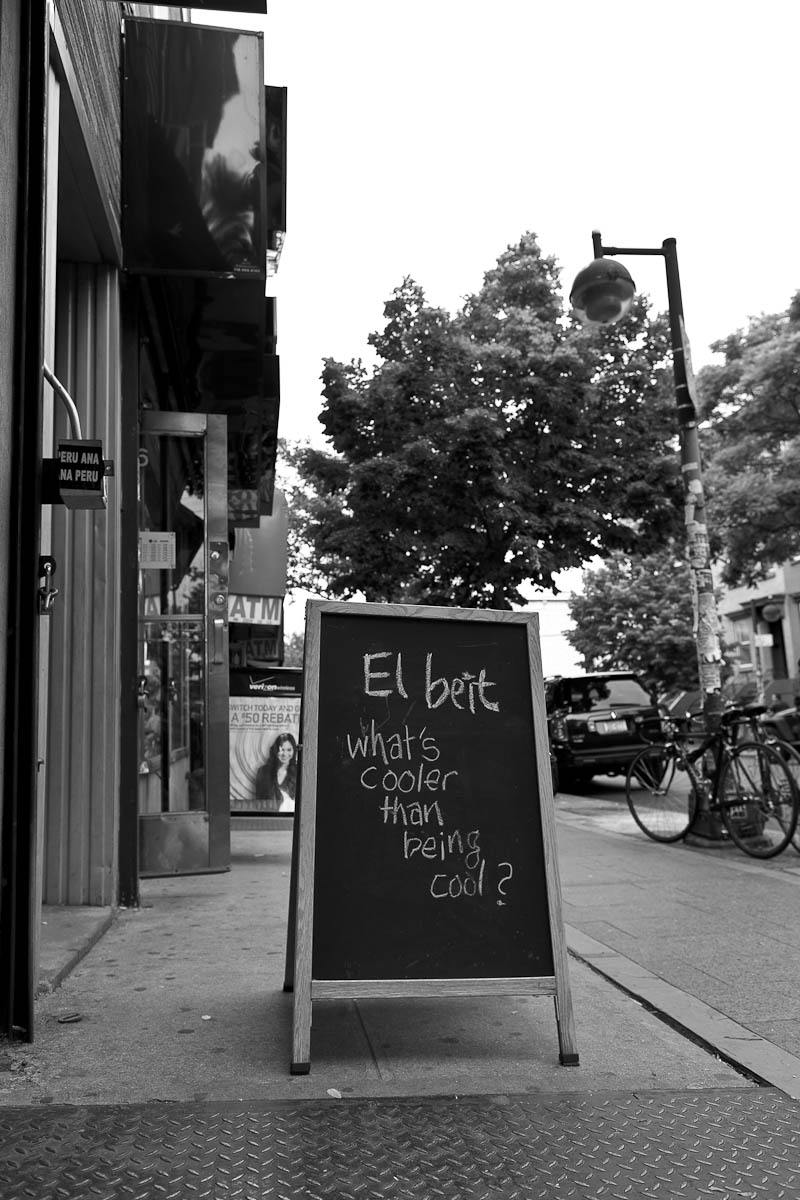 El beit
what's
cooler
than
being
cool?
PERU ANA
NA PERU
ATM
ATM
verizonwireless
SWITCH TODAY AND G
A $50 REBAT